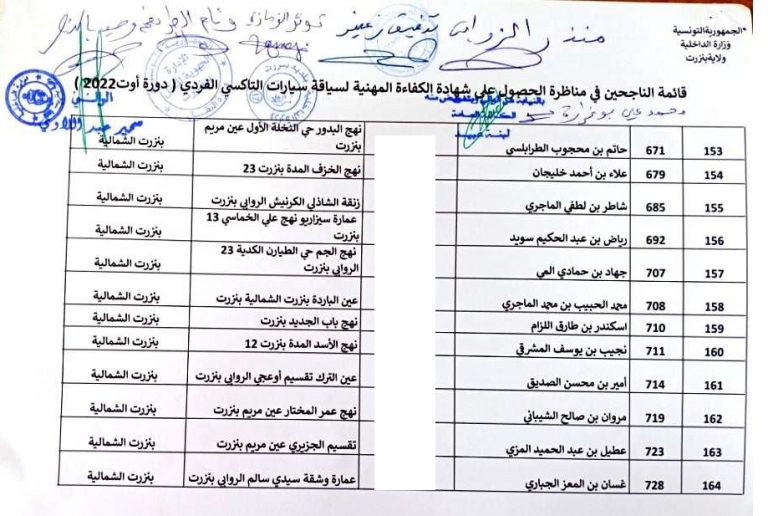 الجمهورية التونسية
وزارة الداخلية
ولاية بنزرت
قائمة الناجحين في مناظرة الحصول على شهادة الكفاءة المهنية لسياقة سيارات التاكسي الفردي ( دورة أوت2022 )
153 671 حاتم بن محجوب الطرابلسي نهج البدور حي النخلة الأول عين مريم بنزرت بنزرت الشمالية
154 679 علاء بن أحمد خليجان نهج الخزف المدة بنزرت 23 بنزرت الشمالية
155 685 شاطر بن لطفي الماجري زنقة الشاذلي الكرنيش الروابي بنزرت بنزرت الشمالية
156 692 رياض بن عبد الحكيم سويد عمارة سيزاريو نهج علي الخماسي 13 بنزرت بنزرت الشمالية
157 707 جهاد بن حمادي المي نهج الجم حي الطيارن الكدية 23 الروابي بنزرت بنزرت الشمالية
158 708 محمد الحبيب بن محمد الماجري عين الباردة بنزرت الشمالية بنزرت بنزرت الشمالية
159 710 اسكندر بن طارق اللزام نهج باب الجديد بنزرت بنزرت الشمالية
160 711 نجيب بن يوسف المشرقي نهج الأسد المدة بنزرت 12 بنزرت الشمالية
161 714 أمير بن محسن الصديق عين الترك تقسيم أوعجي الروابي بنزرت بنزرت الشمالية
162 719 مروان بن صالح الشيباني نهج عمر المختار عين مريم بنزرت بنزرت الشمالية
163 723 عطيل بن عبد الحميد المزي تقسيم الجزيري عين مريم بنزرت بنزرت الشمالية
164 728 غسان بن المعز الجباري عمارة وشقة سيدي سالم الروابي بنزرت بنزرت الشمالية